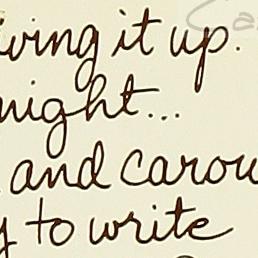 iving it up.
night...
and carou
y to write